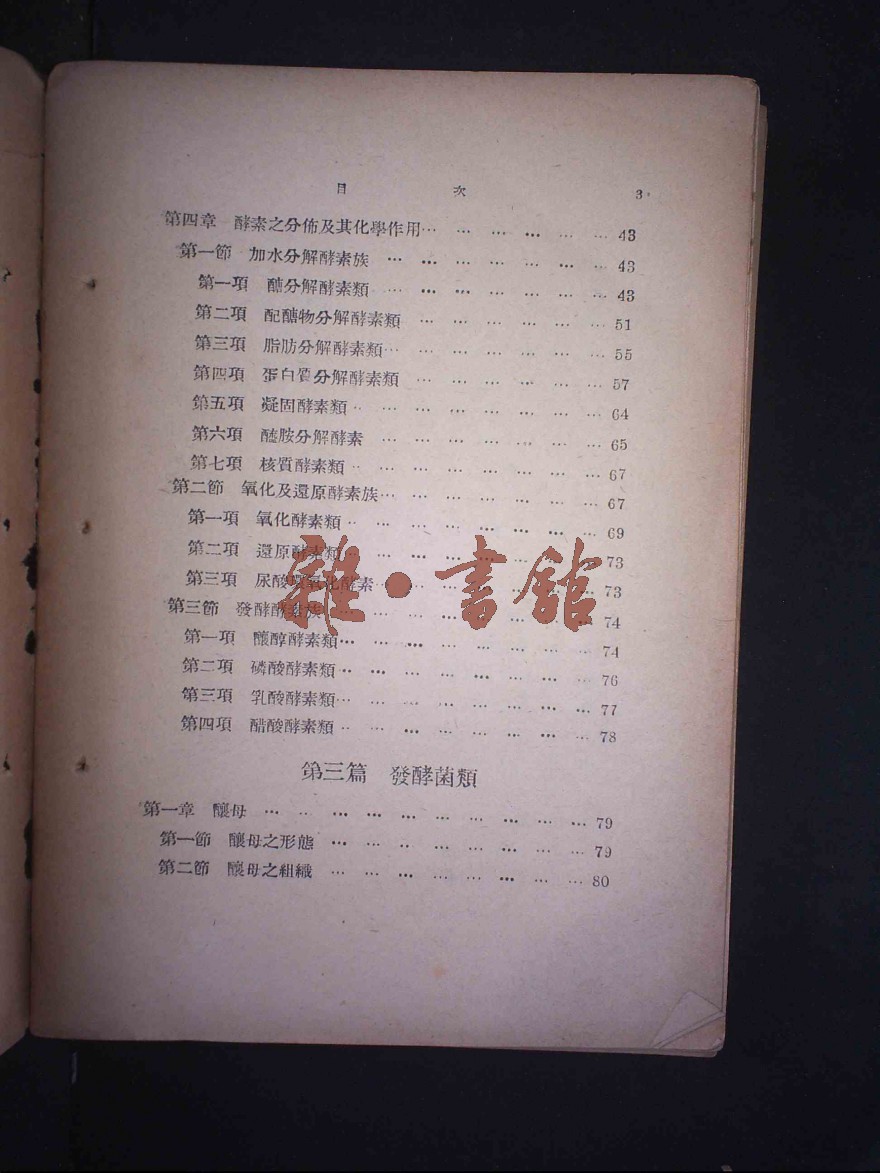 目 次 3
第四章 酵素之分佈及其化學作用… … … … … … 43
第一節 加水分解酵素族 … … … … … … … 43
第一項 醣分解酵素類 … … … … … … … 43
第二項 配醣物分解酵素類 … … … … … … 51
第三項 脂肪分解酵素類… … … … … … … 55
第四項 蛋白質分解酵素類 … … … … … … 57
第五項 凝固酵素類 … … … … … … … … 64
第六項 醯胺分解酵素 … … … … … … … 65
第七項 核質酵素類 … … … … … … … … 67
第二節 氧化及還原酵素族… … … … … … … 67
第一項 氧化酵素類 … … … … … … … … 69
第二項 還原酵素類 … … … … … … … … 73
第三項 尿酸 氧化酵素 … … … … … … … 73
第三節 發酵酵素族 … … … … … … … … 74
第一項 釀醇酵素類… … … … … … … … 74
第二項 磷酸酵素類 … … … … … … … … 76
第三項 乳酸酵素類… … … … … … … … 77
第四項 醋酸酵素類 … … … … … … … … 78
雜·書館
第三篇 發酵菌類
第一章 釀母 … … … … … … … … … … 79
第一節 釀母之形態 … … … … … … … … 79
第二節 釀母之組織 … … … … … … … … 80